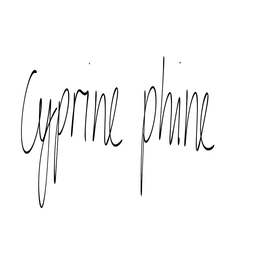 Cyprine phine